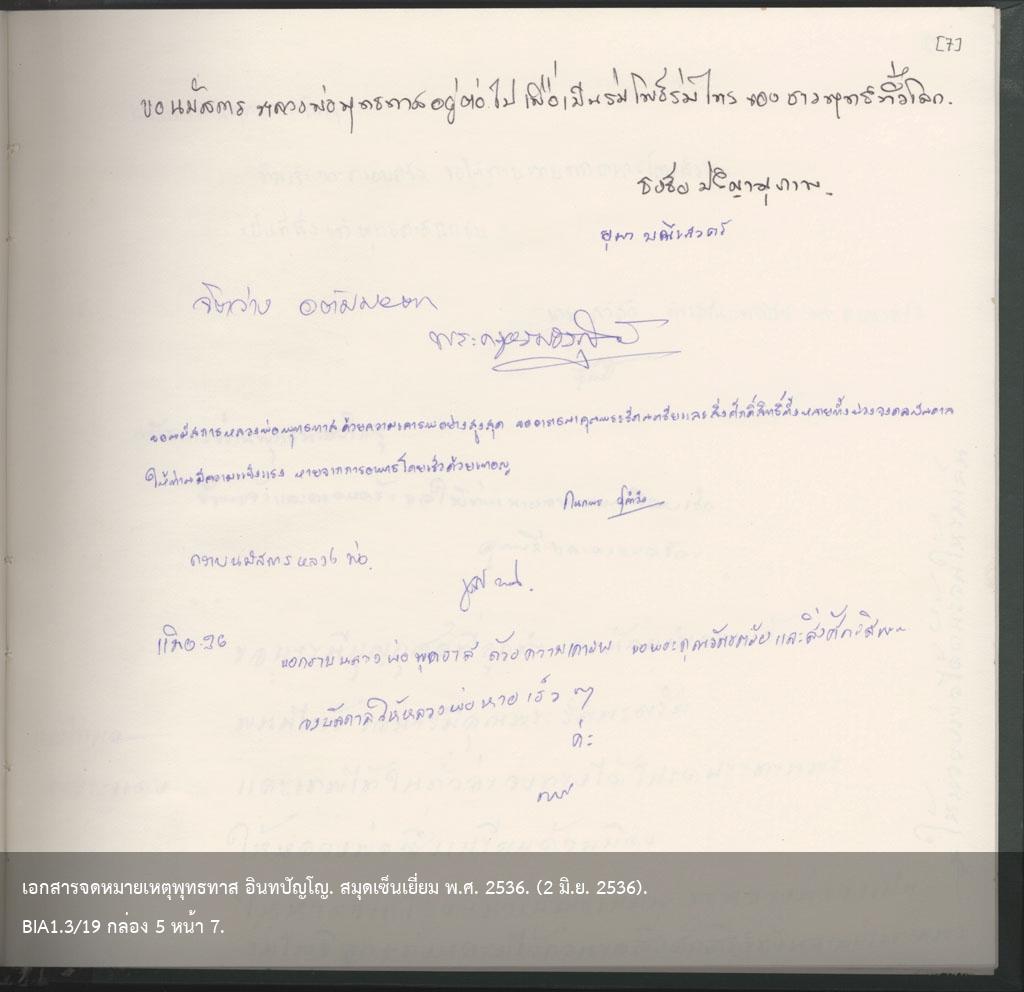 [7]
ขอนมัสการ หลวงพ่อพุทธทาสอยู่ต่อไป เพื่อเป็นร่มโพธิ์ร่มไทร ของ ชาวพุทธทั่วโลก.
ธงชัย ปัญญานุภาพ
ยุพา มณีเสวตร์
จิตว่าง อตัมมยตา
ขอนมัสการหลวงพ่อพุทธทาสด้วยความเคารพอย่างสูงสุด ขออาราธนาคุณพระรัตนตรัยและสิ่งศักดิ์สิทธิ์ทั้งหลายทั้งปวงจงดลบันดาล
ให้ท่านมีความแข็งแรง หายจากการอาพาธโดยเร็วด้วยเทอญ
กราบนมัสการหลวง พ่อ.
ขอกราบหลวง พ่อ พุทธาส ด้วยความเคารพ ขอพระคุณรัตนตรัย และสิ่งศักดิ์สิทธิ์
จงบันดาลให้หลวงพ่อหายเร็ว ๆ
ค่ะ
เอกสารจดหมายเหตุพุทธทาส อินทปัญโญ. สมุดเซ็นเยี่ยม พ.ศ. 2536. (2 มิ.ย. 2536).
BIA1.3/19 กล่อง 5 หน้า 7.